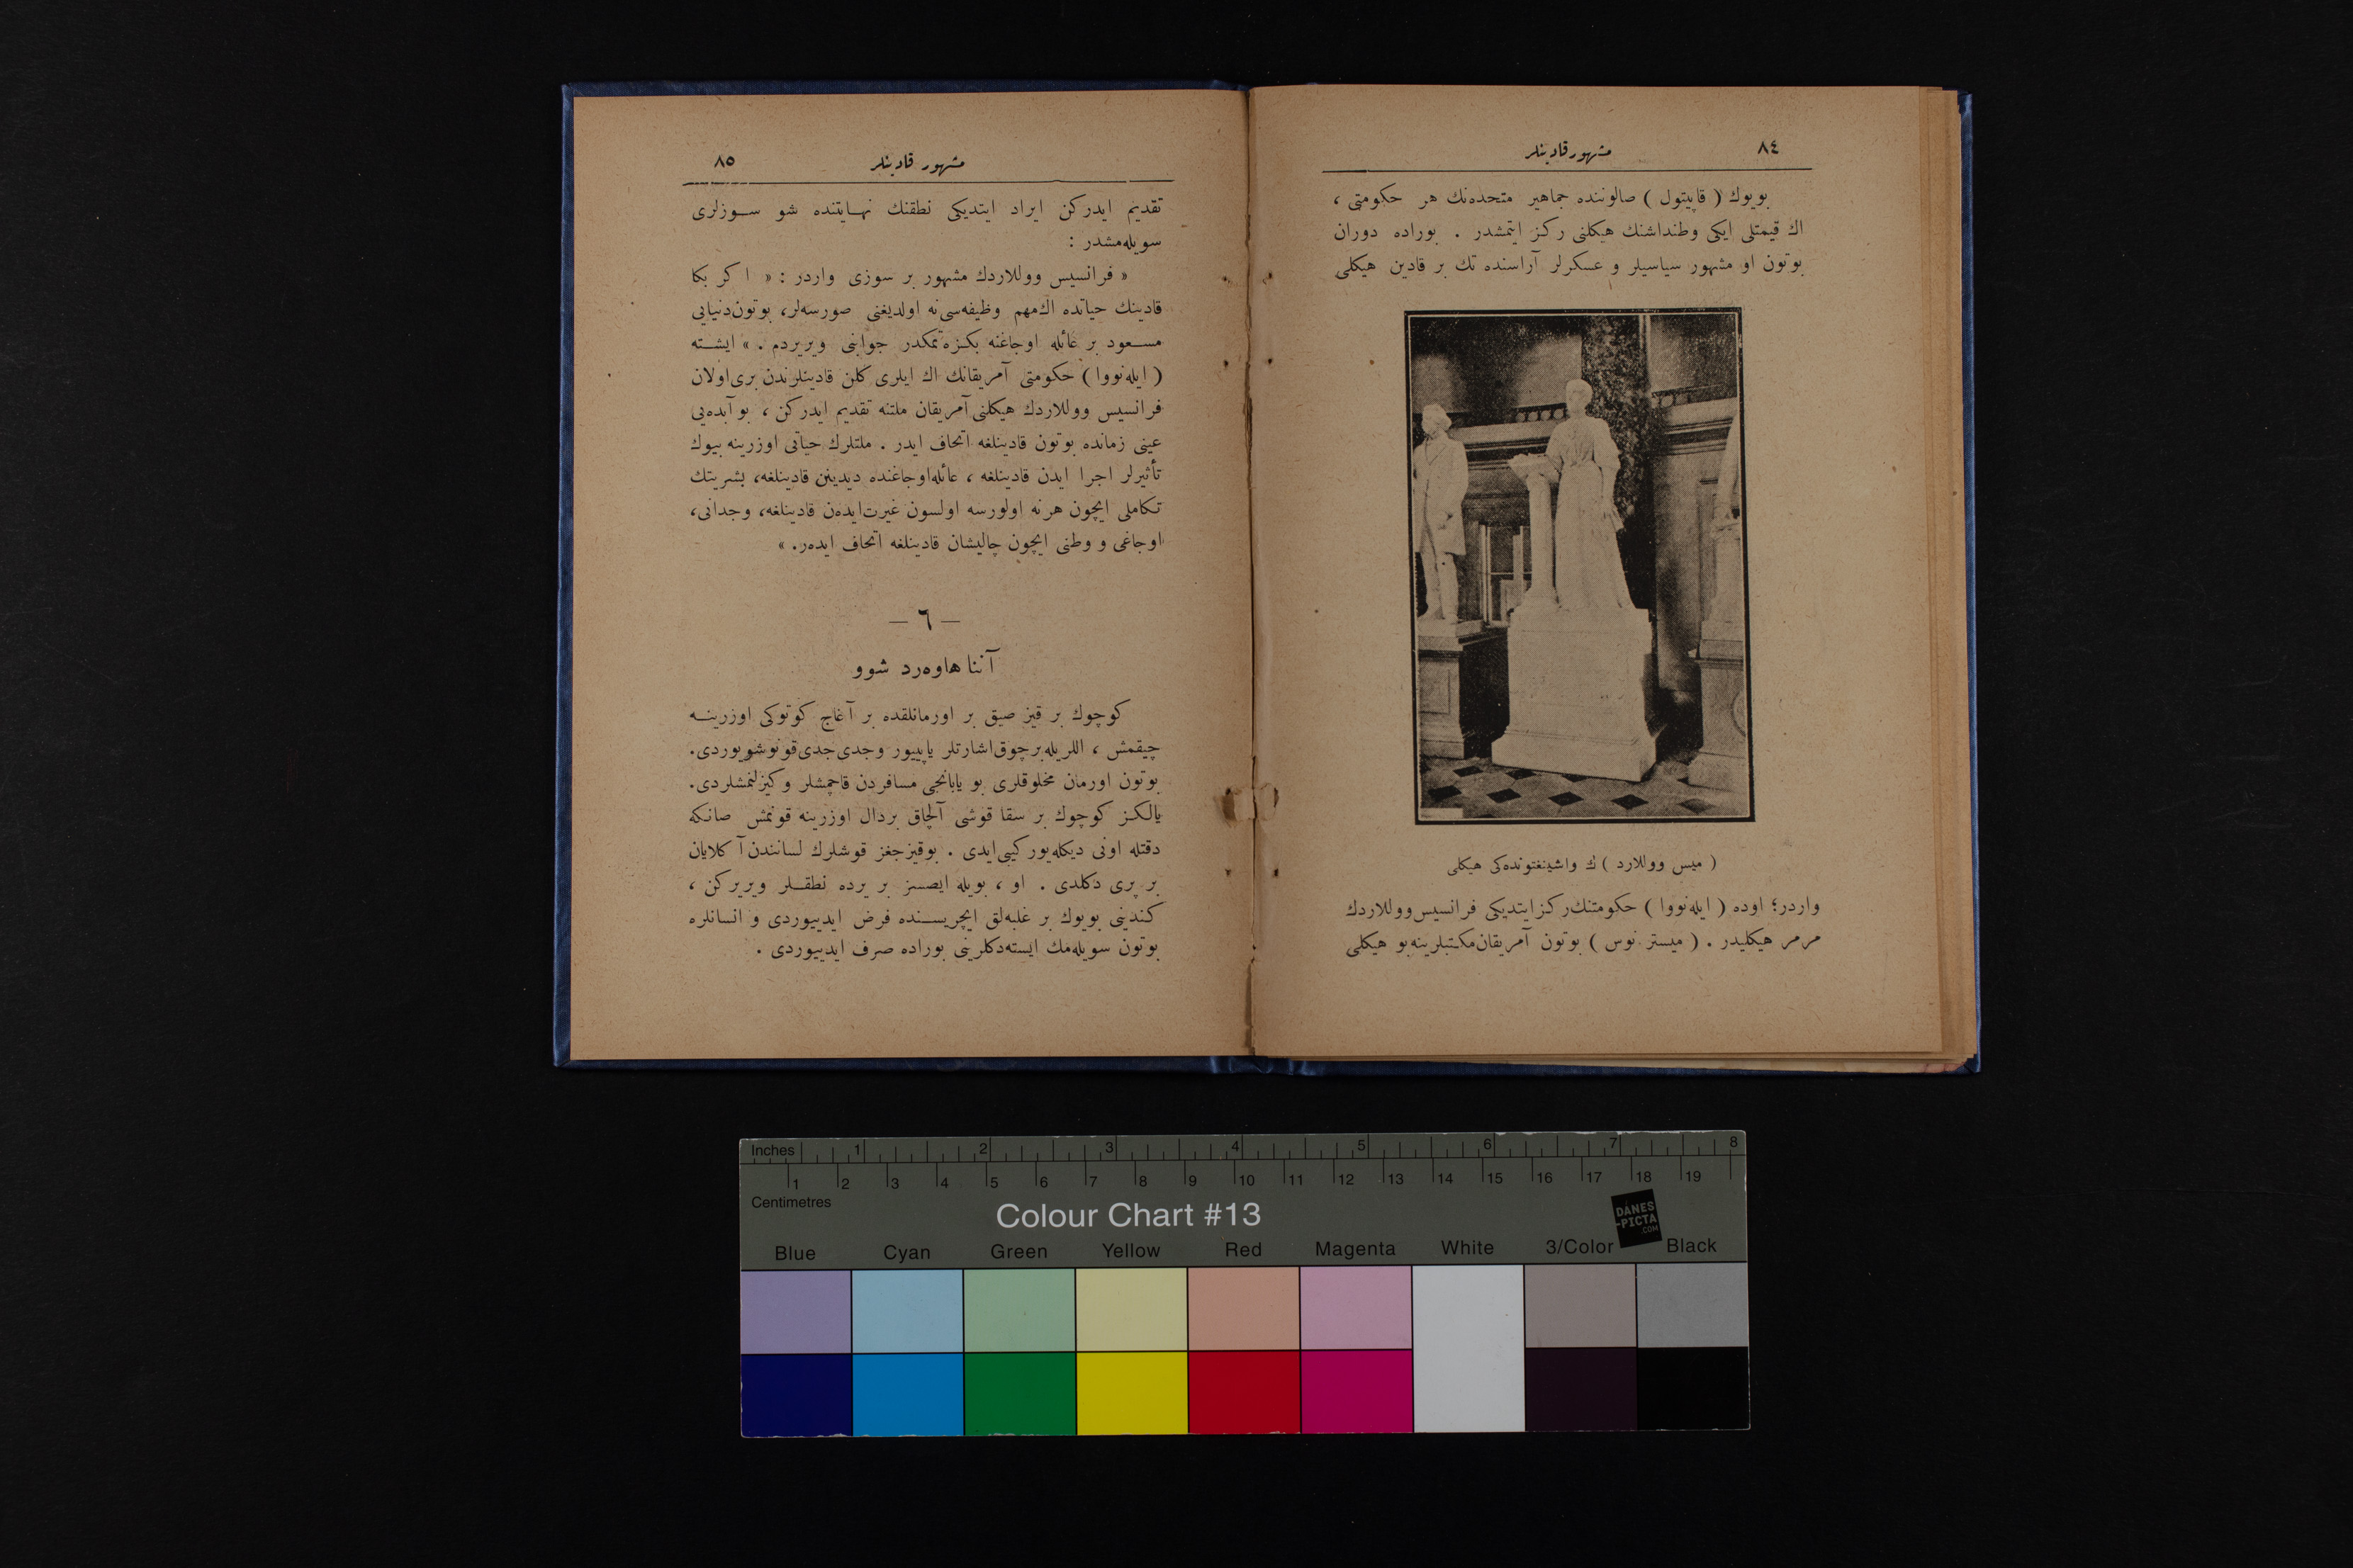 ٨٤
مشهور قادینلر
بویوك ( قاپیتول ) صالوننده جماهیر متحده‌نك هر حکومتی ،
اك قیمتلی ایکی وطنداشنك هیکلنی رکز ایتمشدر . بوراده دوران
بوتون او مشهور سیاسیلر و عسکرلر آراسنده تك بر قادین هیکلی
( میس ووللارد ) ك واشینغتونده‌کی هیکلی
واردر؛ اوده ( ایله‌نووا ) حکومتنك رکز ایتدیکی فرانسیس ووللاردك
مرمر هیکلیدر . ( میستر نوس ) بوتون آمریقان مکتبلرینه بو هیکلی
مشهور قادینلر
٨٥
تقدیم ایدرکن ایراد ایتدیکی نطقنك نهایتنده شو سوزلری
سویله‌مشدر :
« فرانسیس ووللاردك مشهور بر سوزی واردر : « اکر بکا
قادینك حیاتده اك مهم وظیفه‌سی نه اولدیغنی صورسه‌لر، بوتون دنیایی
مسعود بر عائله اوجاغنه بکزه‌تمکدر جوابنی ویریردم . » ایشته
( ایله‌نووا ) حکومتی آمریقانك اك ایلری کلن قادینلرندن بری اولان
فرانسیس ووللاردك هیکلنی آمریقان ملتنه تقدیم ایدرکن ، بو آبده‌یی
عینی زمانده بوتون قادینلغه اتحاف ایدر . ملتلرك حیاتی اوزرینه بیوك
تأثیرلر اجرا ایدن قادینلغه ، عائله اوجاغنده دیدینن قادینلغه، بشریتك
تکاملی ایچون هرنه اولورسه اولسون غیرت ایده‌ن قادینلغه، وجدانی،
اوجاغی و وطنی ایچون چالیشان قادینلغه اتحاف ایده‌ر. »
— ٦ —
آننا هاوه‌رد شوو
کوچوك بر قیز صیق بر اورمانلقده بر آغاج کوتوکی اوزرینه
چیقمش ، اللریله بر چوق اشارتلر یاپییور وجدی جدی قونوشویوردی.
بوتون اورمان مخلوقلری بو یابانجی مسافردن قاچمشلر و کیزلنمشلردی.
یالکز کوچوك بر سقا قوشی آلچاق بردال اوزرینه قونمش صانکه
دقتله اونی دیکله‌یور کیبی ایدی . بوقیزجغز قوشلرك لسانندن آ کلایان
بر پری دکلدی . او ، بویله ایصسز بر یرده نطقلر ویریرکن ،
کندینی بویوك بر غلبه‌لق ایچریسنده فرض ایدییوردی و انسانلره
بوتون سویله‌مك ایسته‌دکلرینی بوراده صرف ایدییوردی .
Inches 1 2 3 4 5 6 7 8
1 2 3 4 5 6 7 8 9 10 11 12 13 14 15 16 17 18 19
Centimetres
Colour Chart #13
DANES
-PICTA
.COM
Blue Cyan Green Yellow Red Magenta White 3/Color Black